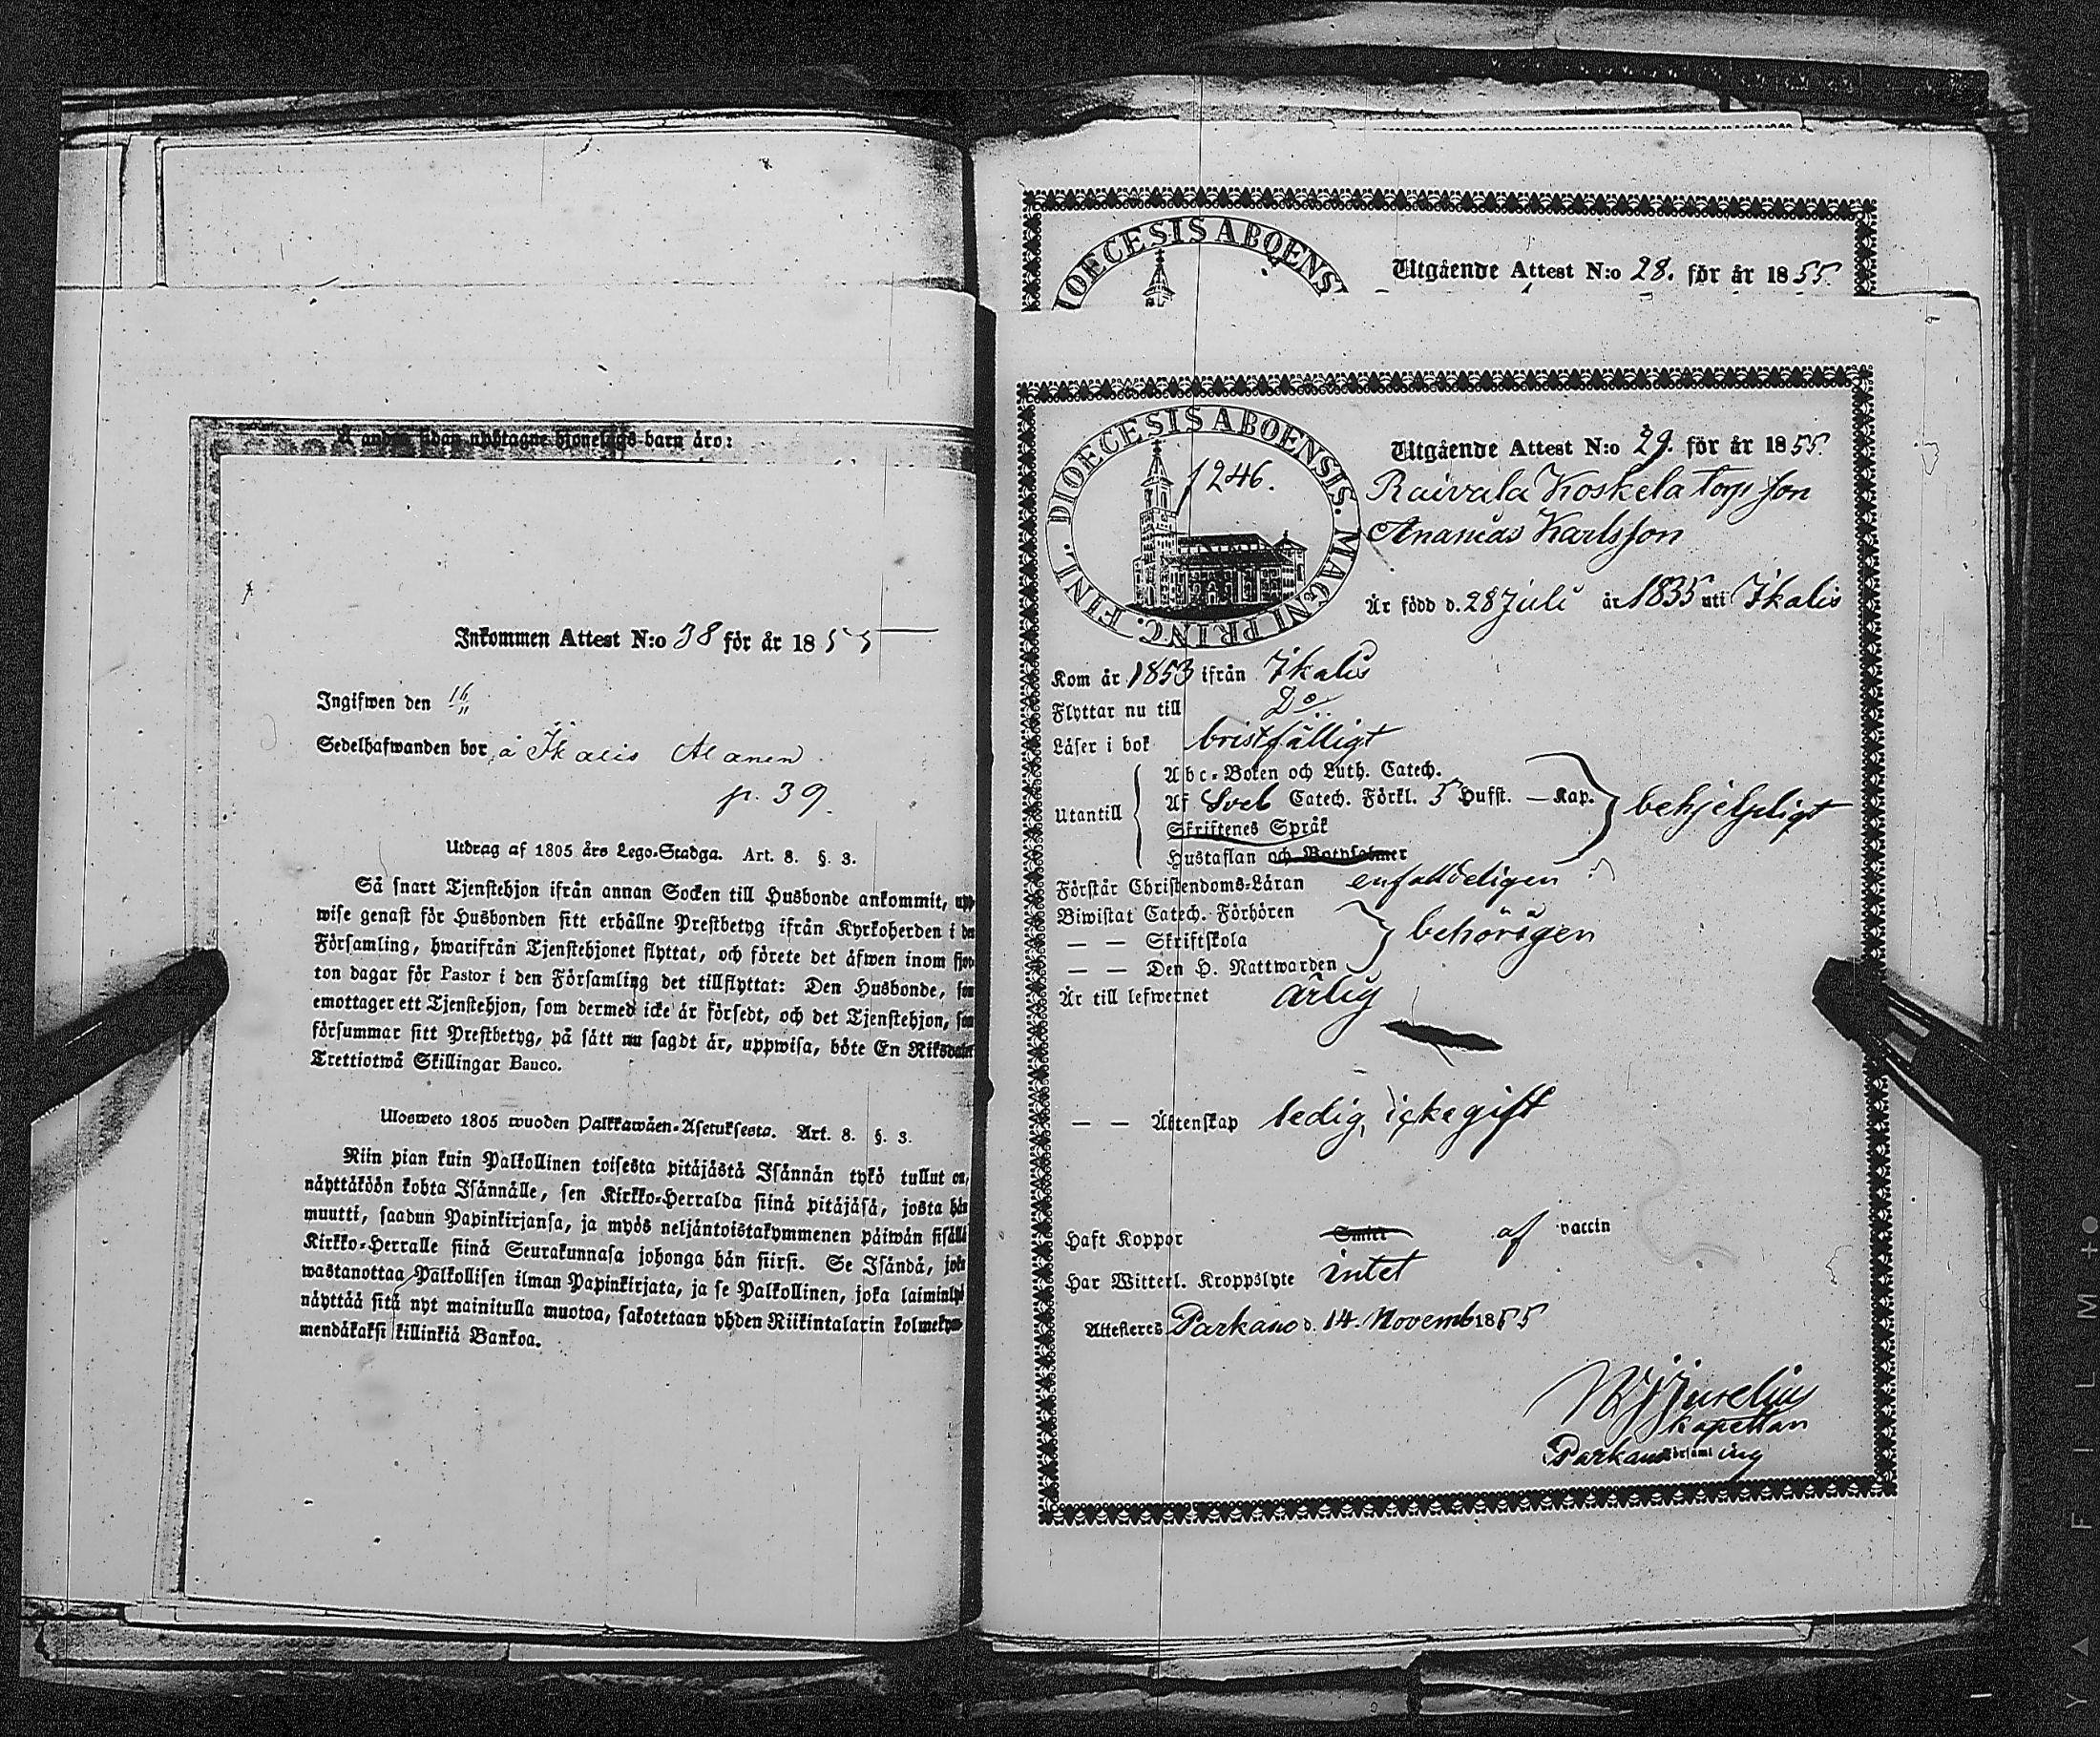 Å andra sidan upptagne hjonelags barn äro:
Inkommen Attest N:o 38 för år 1855
Ingifwen den 16/11
Sedelhafwanden bor å Ikalis Alanen.
p. 39.
Utdrag af 1805 års Lego-Stadga. Art. 8. §. 3.
Så snart Tjenstehjon ifrån annan Socken till Husbonde ankommit, upp-
wise genast för Husbonden sitt erhållne Prestbetyg ifrån Kyrkoherden i den
Församling, hwarifrån Tjenstehjonet flyttat, och förete det äfwen inom fjor-
ton dagar för Pastor i den Församling det tillflyttat: Den Husbonde, som
emottager ett Tjenstehjon, som dermed icke är försedt, och det Tjenstehjon, som
försummar sitt Prestbetyg, på sätt nu sagdt är, uppwisa, böte En Riksdaler
Trettiotwå Skillingar Banco.
Ulosweto 1805 wuoden Palkkawäen-Asetuksesta. Art. 8. §. 3.
Niin pian kuin Palkollinen toisesta pitäjästä Isännän tykö tullut on,
näyttäköön kohta Isännälle, sen Kirkko-Herralda siinä pitäjäsä, josta hän
muutti, saadun Papinkirjansa, ja myös neljäntoistakymmenen päiwän sisällä
Kirkko-Herralle siinä Seurakunnasa johonga hän siirsi. Se Isändä, joka
wastanottaa Palkollisen ilman Papinkirjata, ja se Palkollinen, joka laiminlyö
näyttää sitä nyt mainitulla muotoa, sakotetaan yhden Riikintalarin kolmekym-
mendäkaksi killinkiä Bankoa.
DIOECESIS ABOENSIS
Utgående Attest N:o 28. för år 1855.
DIOECESIS ABOENSIS. MAGNI PRINC. FINL.
1246.
Utgående Attest N:o 29. för år 1855.
Raivala Koskela Torp son
Ananias Karlsson
Är född d. 28 Juli år 1835 uti Ikalis
Kom år 1853 ifrån Ikalis
Flyttar nu till Do
Läser i bok bristfälligt
Utantill
Abc-Boken och Luth. Catech.
Af Sveb Catech. Förkl. 5 Hufst. — Kap.
Skriftenes Språk
Hustaflan och Botpsalmer
behjelpligt
Förstår Christendoms-Läran enfalldeligen
Biwistat Catech. Förhören
— — Skriftskola
— — Den H. Nattwarden
behörigen
Är till lefwernet ärlig
— — Äktenskap ledig, icke gift
Haft Koppor Smitt af vaccin
Har Witterl. Kroppslyte intet
Attesteres Parkano d. 14. Novemb 1855
Kapellan
Parkano församling
FILM